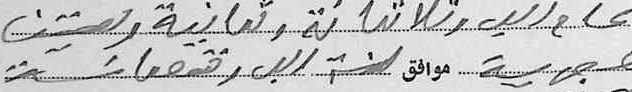 عام الف وثلاثمائة وثمانية وستين
هجرية موافق سنة الف وتسعمائة